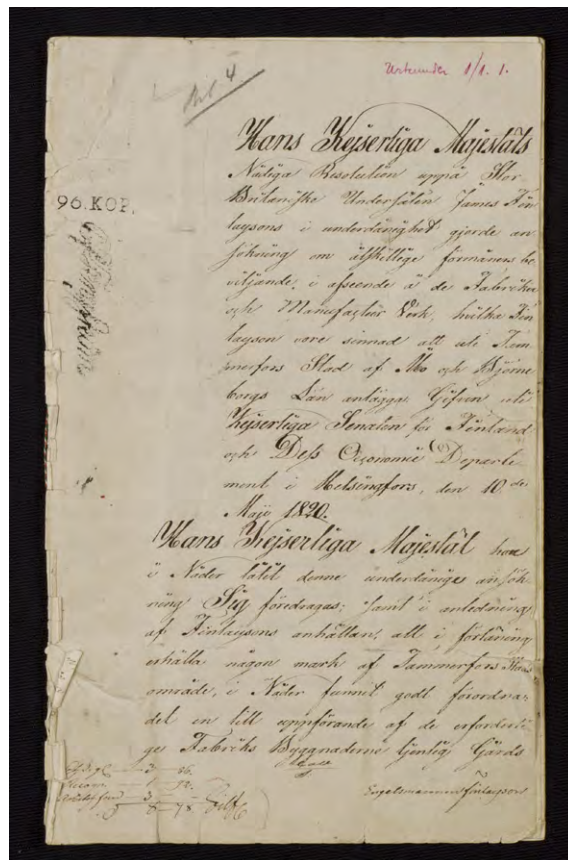 Urkunder 1/1. 1.
4
Hans Kejserliga Majestäts
Nådiga Resolution uppå Stor
Britaniske Undersåten James Fin
laysons i underdånighet gjorde an
sökning om åtskillige förmåners be
viljande, i afseende å de Fabriks
och Manufactur Verk, hvilka Fin
layson vore sinnad att uti Tam
merfors Stad af Åbo och Björne
borgs Län anlägga. Gifven uti
Kejserliga Senaten för Finland
och Dess Oeconomie Departe
ment i Helsingfors, den 10 de
Maji 1820.
96.KOP.
Hans Kejserliga Majestät har
i Nåder låtit denne underdånige ansök
ning Sig föredragas; samt i anledning
af Finlaysons anhållan, att i förläning
erhålla någon mark af Tammerfors Stads
område, i Nåder funnit godt förordna,
det en till uppförande af de erforderli
ge Fabriks Byggnaderne tjenlig Gårds
Engelsmannen Finlayson